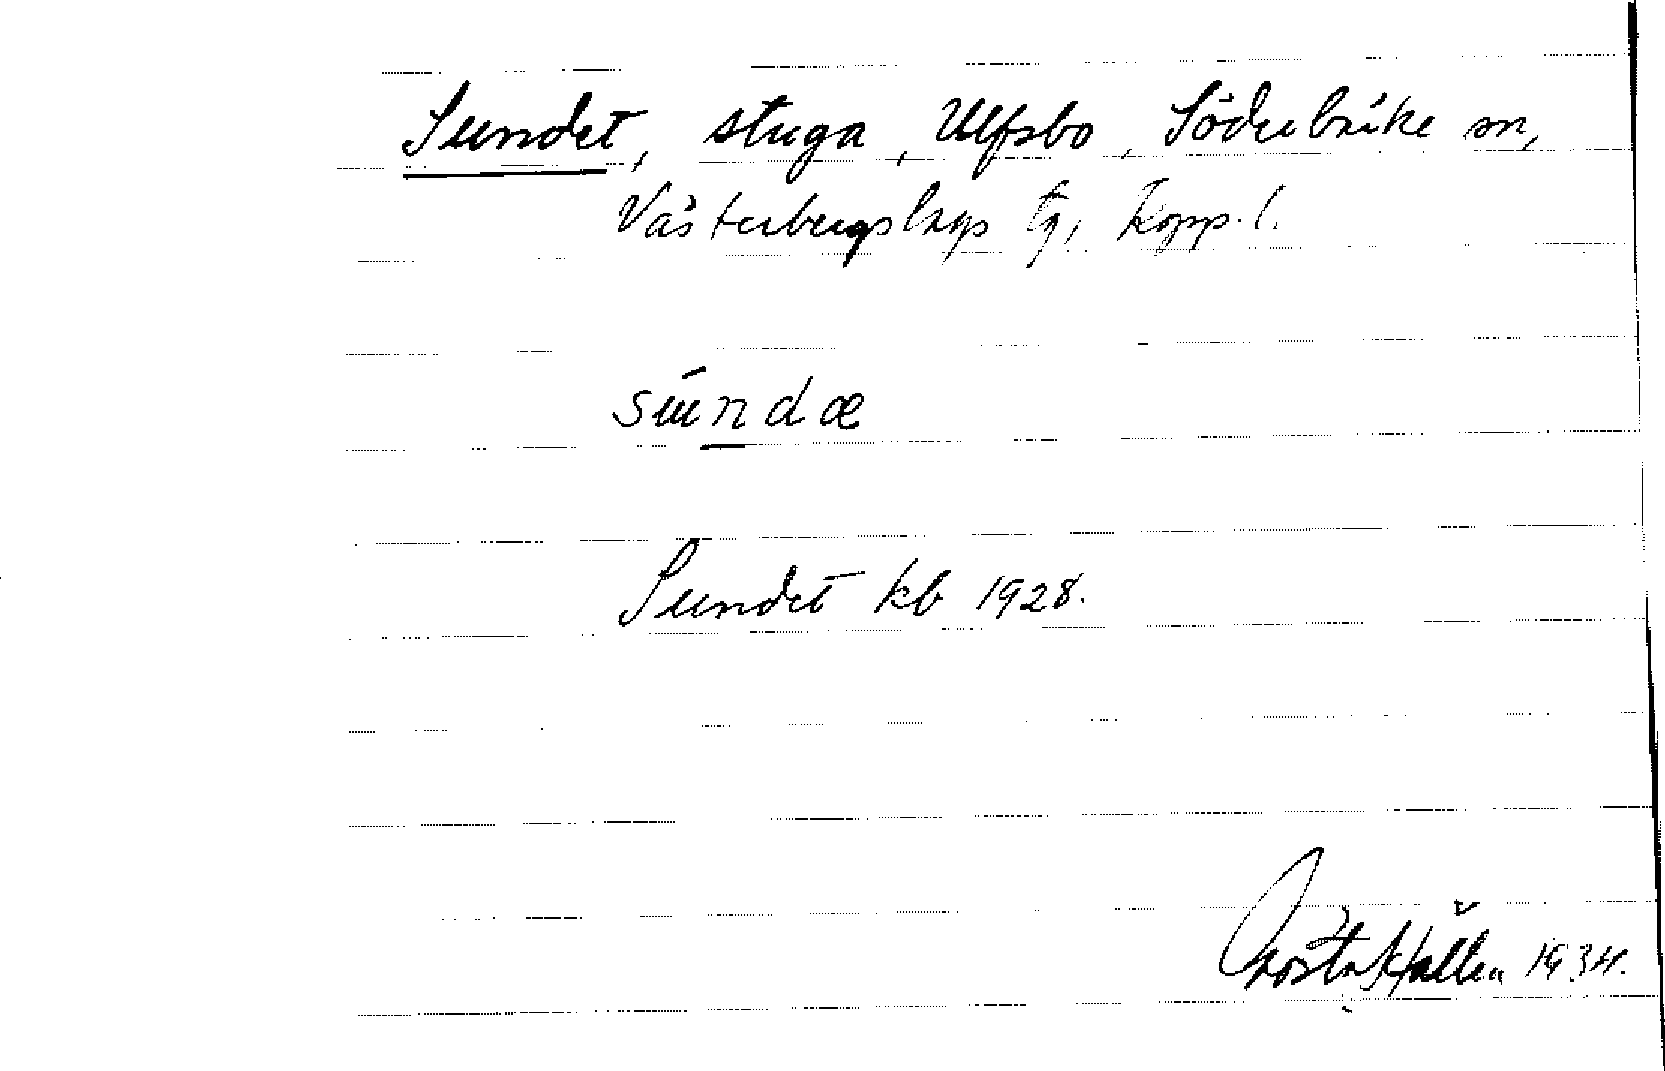 Sundet, stuga, Ulfsbo, Söderbärke sn,
Västerbergslags tg, Kopp. l.
súndæ
Sundet kb 1928.
Gösta Hallén 1934.